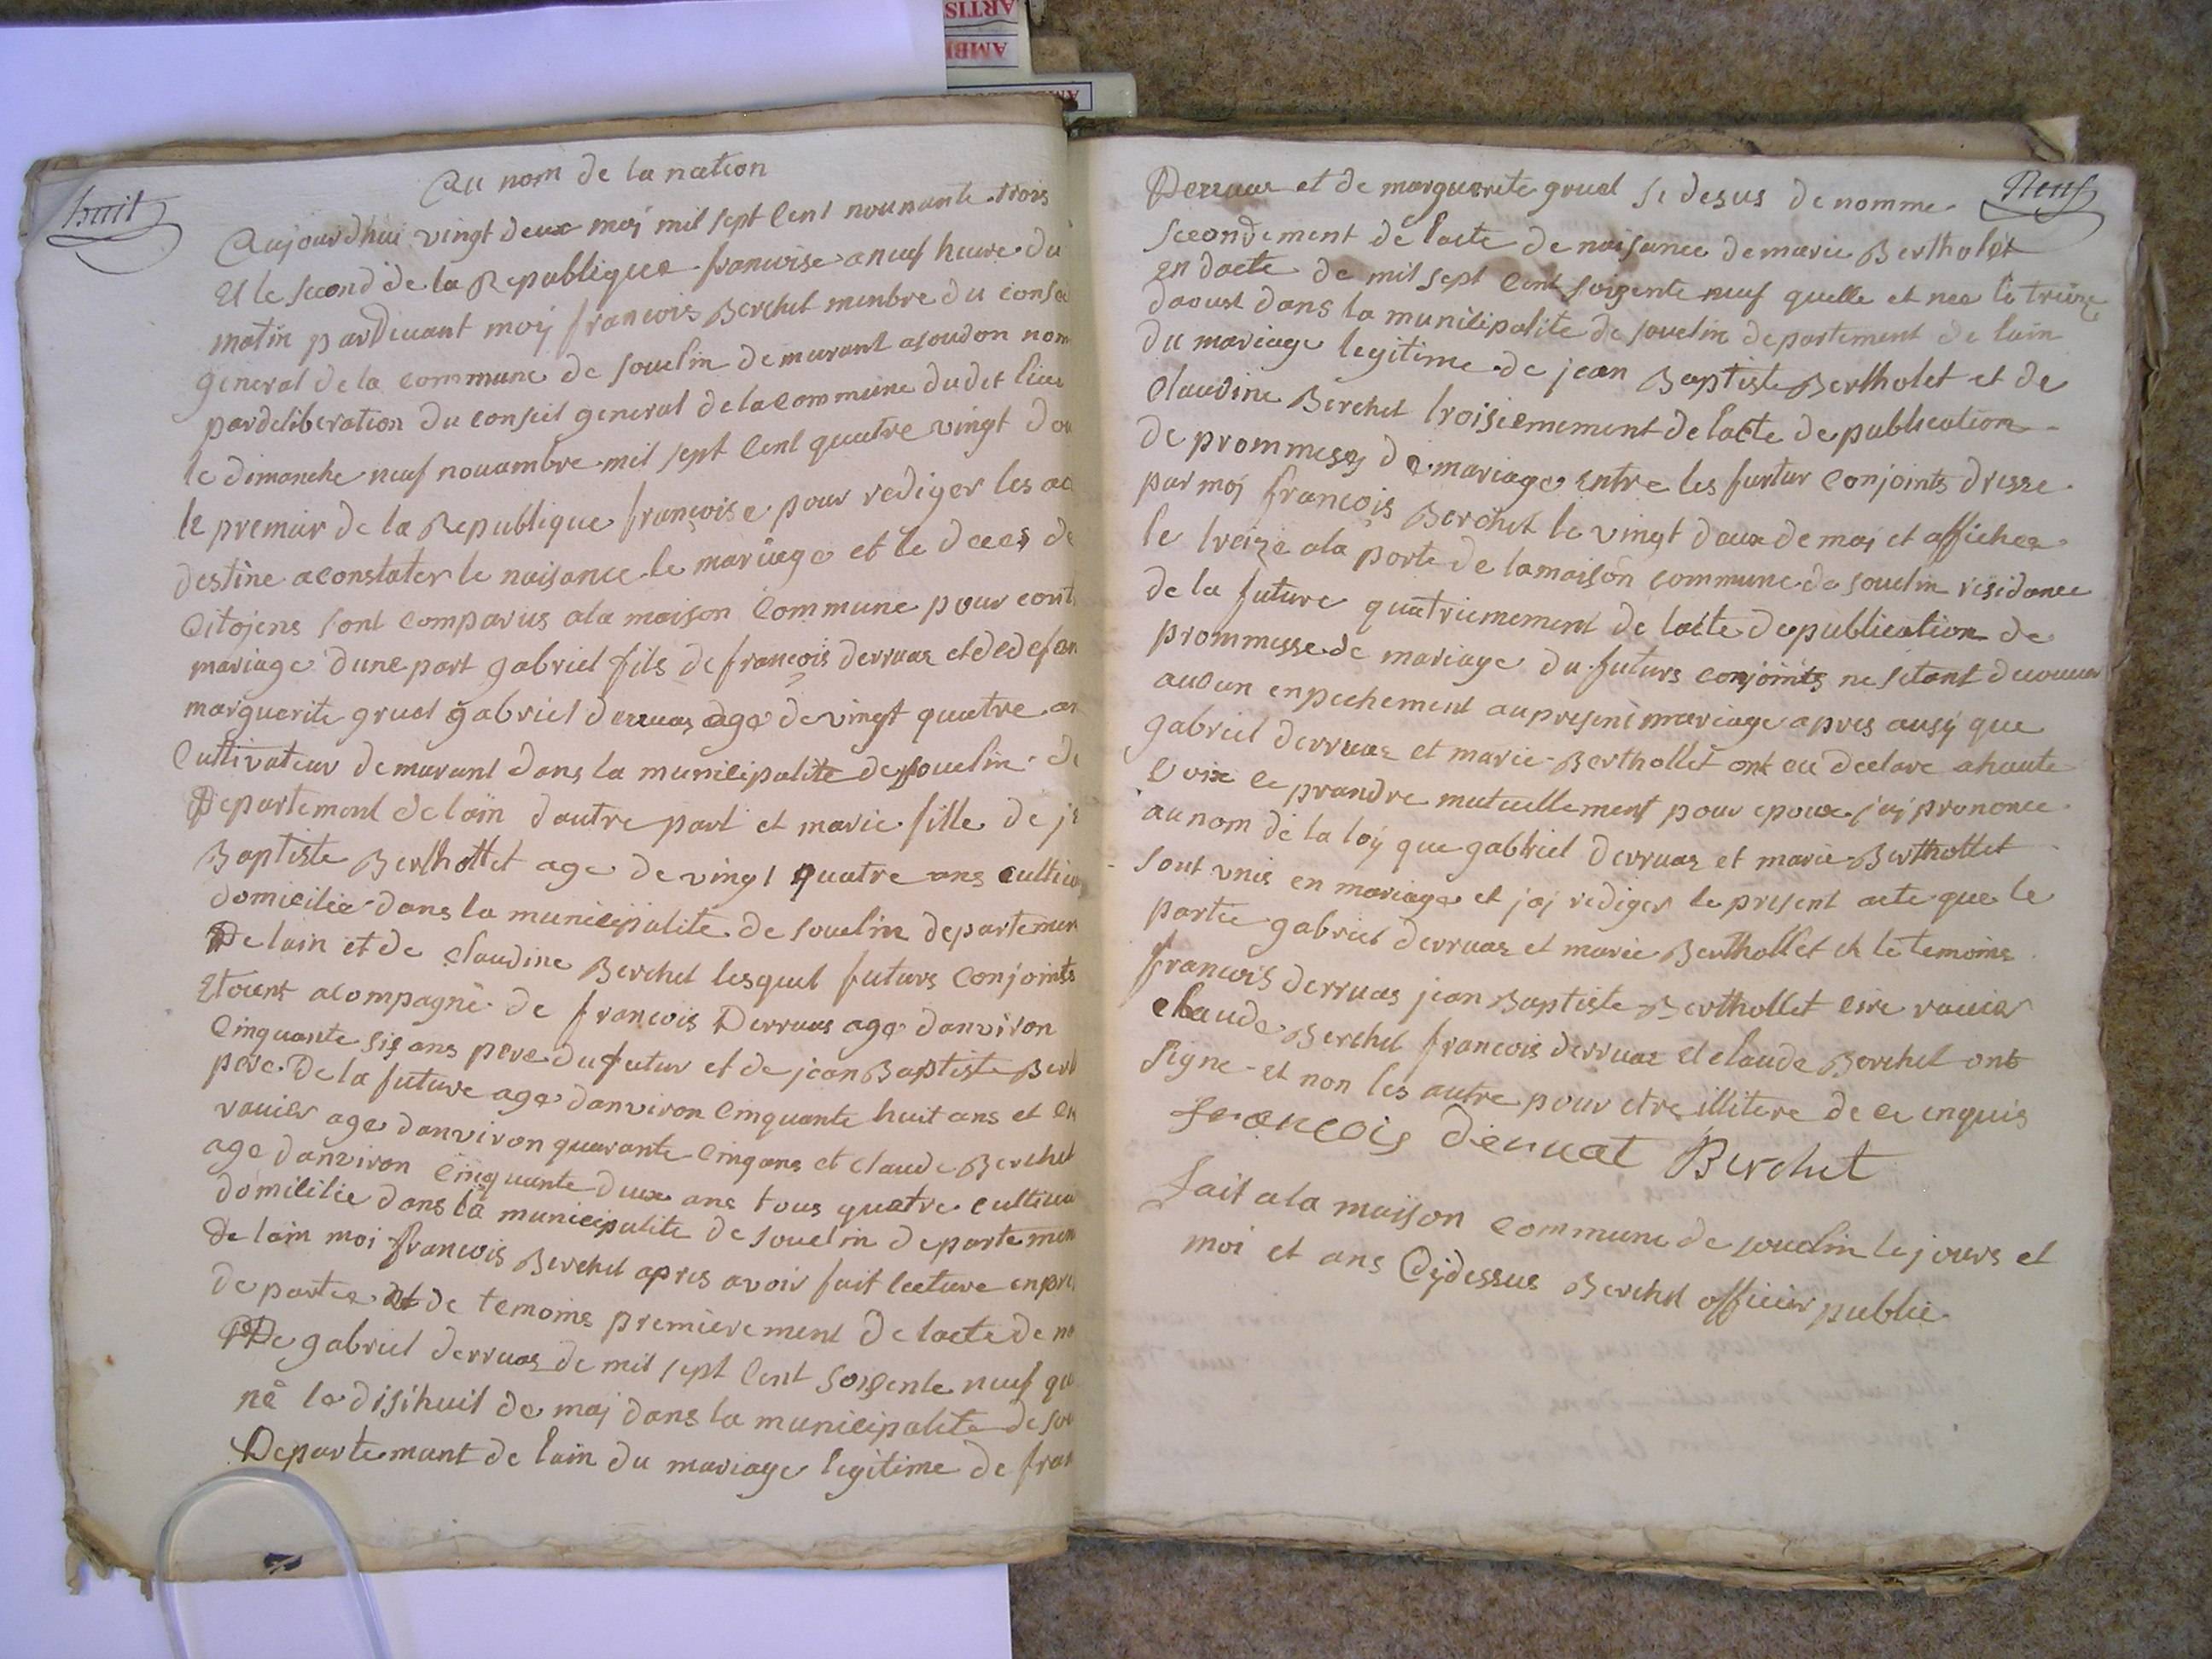 ARTIS
AMBI
huit
Au nom de la nation
Aujourdhui vingt deux maj mil sept Cent nounante trois
Et le second de la Republique francoise a neuf heure du
matin pardeuant moÿ francois Berchet menbre du conse
general de la commune de souclin demurant asoudon nom
pardeliberation du conseil general de la commune dudet lieu
le dimanche neuf nouambre mil sept Cent quatre vingt dou
le premier de la Republique françoise pour rediger les ac
destine aconstater le naisance le mariage et le deces de
Citojens sont Comparus ala maison Commune pour cont
mariage dune part gabriel fils de francois derruaz et de defun
marguerite gruel gabriel derruaz age de vingt quatre an
Cultivateur demurant dans la municipalite de souclin de
Departement de lain dautre part et marie fille de je
Baptiste Berthollet age de vingt quatre ans cultiva
domiciliee dans la municipalite de souclin departemen
De lain et de claudine Berchet lesquel futurs Conjoints
Etoient acompagné de francois Derruas age danviron
Cinquante sis ans pere du futur et de jean Baptiste Bert
pere De la future age danviron Cinquante huit ans et
rauier age danviron quarante Cinq ans et claude Berchet
age danviron Cinquante deux ans tous quatre cultiua
domicilie dans la municipalite de souclin departemen
de lain moi francois Berchet apres avoir fait lecture enpre
de partie et de temoins premierement de lacte de na
De gabriel derruaz de mil sept Cent soisente neuf qu
né le disihuit de maj dans la municipalite de sou
Departemant de lain du mariage legitime de fran
Neuf
Derruaz et de marguerite gruel si desus denomme
secondement de lacte de naisance de marie Bertholet
en dacte de mil sept Cent soisente neuf quelle et nee le treize
daoust dans la municipalite de souclin departement de lain
du mariage legitime de jean Baptiste Bertholet et de
Claudine Berchet troisiemement de lacte de publication
de prommeses de mariage entre les furtur Conjoints dresse
par moj francois Berchet le vingt deux de maj et affichee
le treize ala porte de lamaison commune de souclin residance
de la future quatriemement de lacte de publication de
prommesse de mariage du futurs conjoints ne setant decouuer
aucun enpechement au present mariage apres ausÿ que
gabriel derruaz et marie Berthollet ont eu declare ahaute
Voix ce prandre mutuellement pour epoux jaj prononce
au nom de la loÿ que gabriel derruaz et marie Berthollet
sont vnis en mariage et jaj rediger le present acte que le
partie gabriel derruaz et marie Berthollet et le temoins
francois derruas jean Baptiste Berthollet rauier
claude Berchet francois derruaz et claude Berchet ont
signe et non les autre pour etre illitere de ce enquis
francois derruat Berchet
fait ala maison Commune de souclin le jours et
moi et ans Cÿdessus Berchet officier public